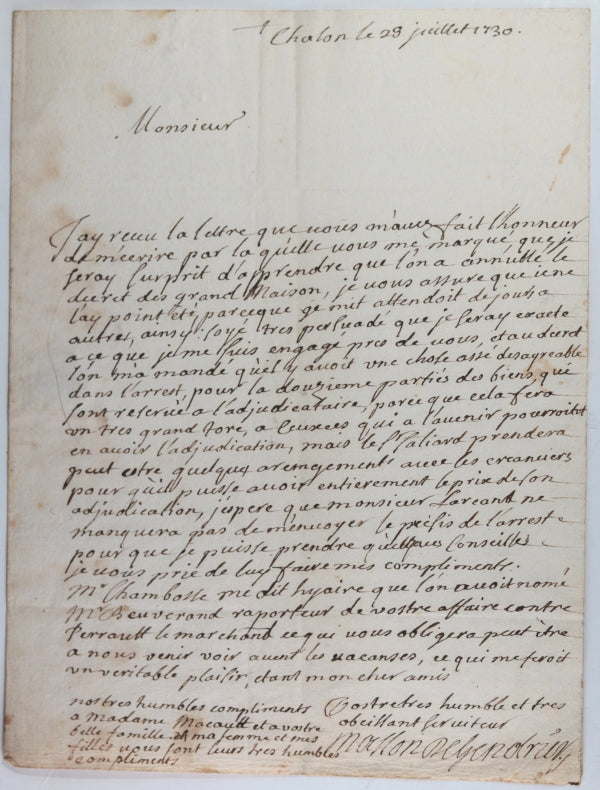 + Chalon le 28 juillet 1730.
Monsieur
J'ay receu la lettre que vous m'avez fait l'honneur
de m'ecrire par la quelle vous me marqué que je
seray surprit d'apprendre que l'on a annullé le
decret des grand Maison, je vous assure que je ne
l'ay point été, parceque je mit attendoit de jours a
autres, ainsy soyé tres persuadé que je seray exacte
a ce que je me suis engagé pres de vous,
l'on m'a mandé qu'il y avoit une chose assé desagreable
dans l'arrest, pour la douzieme parties des biens, qui
sont reservée a l'adjudicataire, parce que cela fera
un tres grand tore, a ceux qui a l'avenir pourroit
en avoir l'adjudication, mais le Sr Paliard prendera
peut estre quelques arengements avec les creanciers
pour qu'il puisse avoir entierement le prix de son
adjudication, j'espere que monsieur Larcant ne
manquera pas de m'envoyer le présis de l'arrest
pour que je puisse prendre quelques conseilles
je vous prie de luy faire mes compliments.
Mr Chambosle me dit hyaire que l'on avoit nomé
Mr Beuverand raporteur de vostre affaire contre
Perrault le marchand ce qui vous obligera peut être
a nous venir voir avent les vacanses, ce qui me feroit
un veritable plaisir, etant mon cher amis
nostres humbles compliments
a Madame Macault et a vostre
belle famille et ma femme et mes
filles vous font leurs tres humbles
compliments
Vostre tres humble et tres
obeissant serviteur
Masson